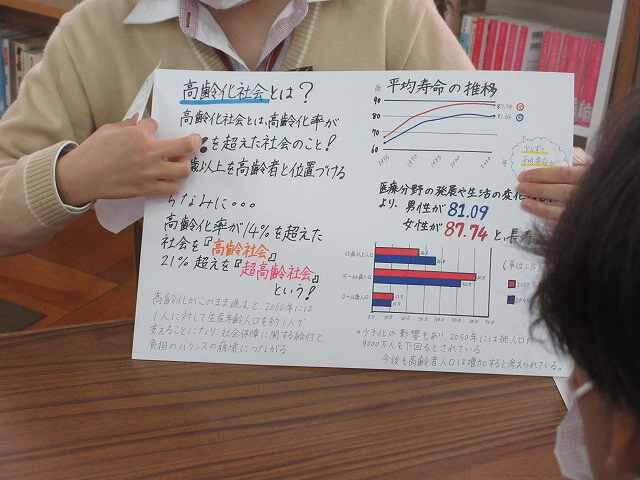 高齢化社会とは?
高齢化社会とは、高齢化率が
%を超えた社会のこと!
歳以上を高齢者と位置づける
ちなみに・・・
高齢化率が14%を超えた
社会を『高齢社会』
21%超えを『超高齢社会』
という!
高齢化がこのまま進むと、2050年には
1人に対して生産年齢人口を約1人で
支えることになり、社会保障に関する給付と
負担のバランスの崩壊につながる
平均寿命の推移
90
80
70
60
87.74
81.09
医療分野の発展や生活の変化
より、男性が81.09
女性が87.74と、長寿
少子化の影響もあり、2050年には総人口
9000万人を下回るとされている
今後も高齢者人口は増加すると考えられている。